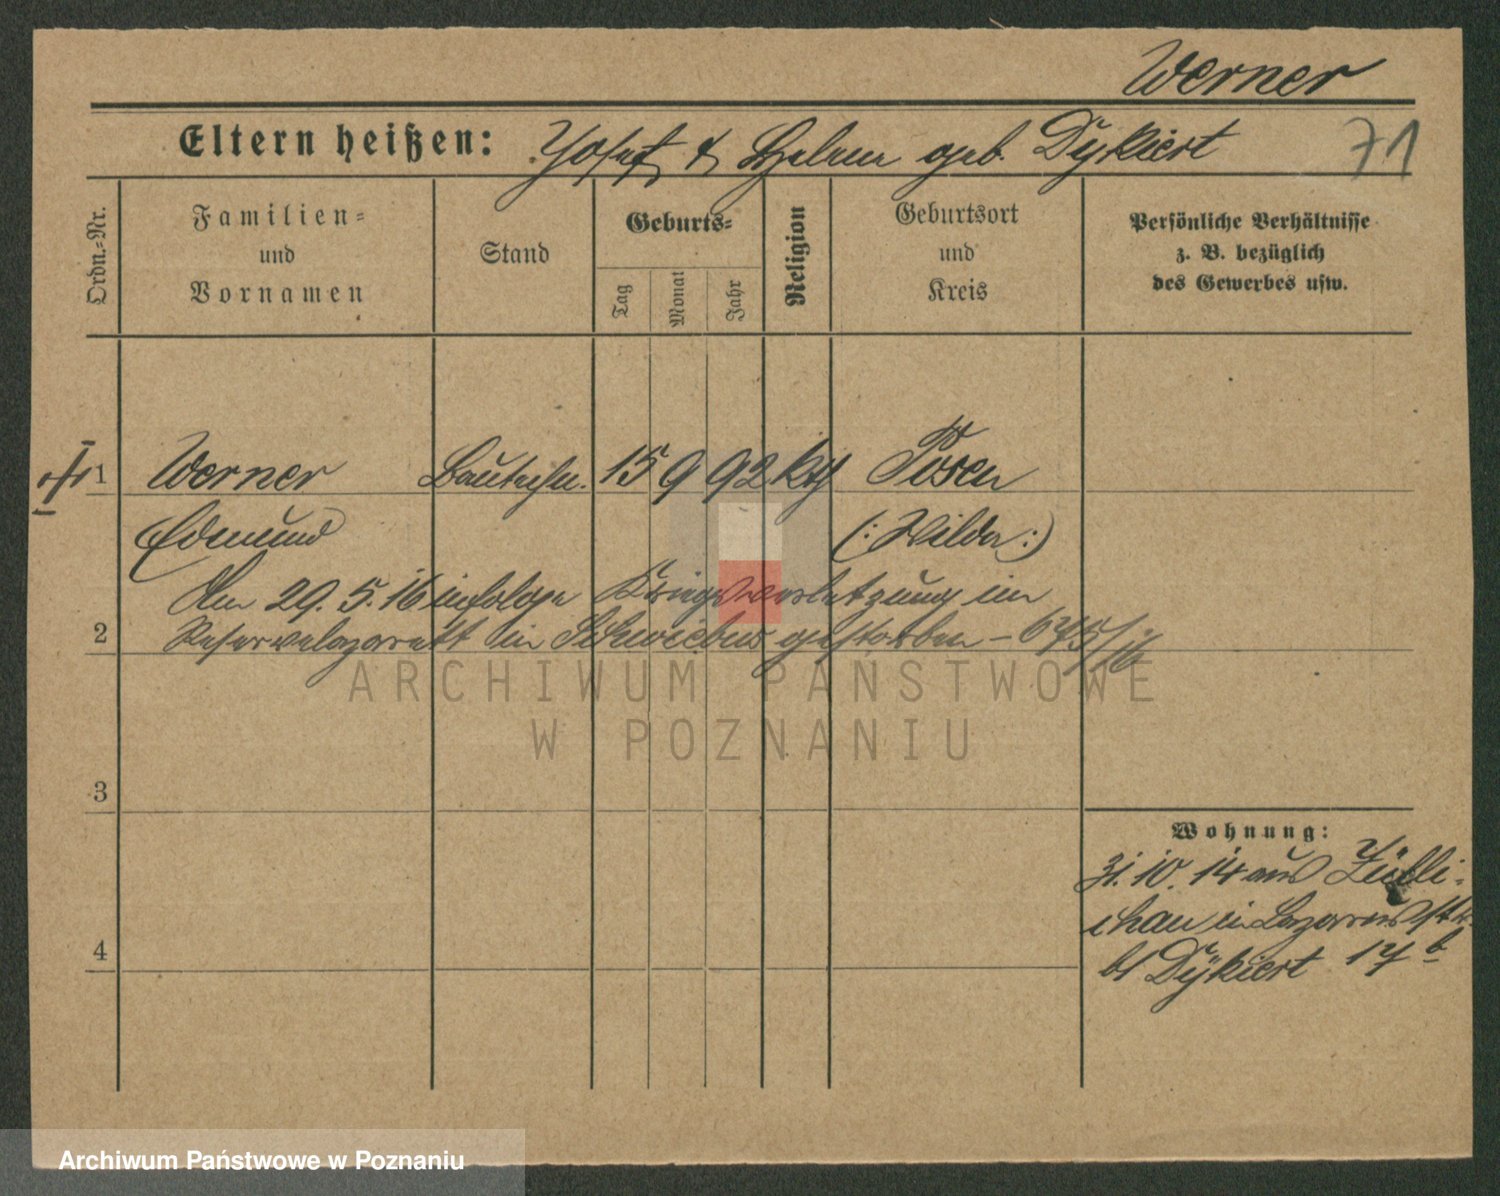 Werner
Eltern heißen: Josef & Helene geb. Dÿkiert
71
Ordn.=Nr.
Familien=
und
Vornamen
Stand
Geburts=
Tag
Monat
Jahr
Religion
Geburtsort
und
Kreis
Persönliche Verhältnisse
z. B. bezüglich
des Gewerbes usw.
1 Werner 15 9 92 kth Posen
Edmund (: Wilda :)
Am 29. 5. 16 infolge Kriegsverletzung im
2 Reservelazarett in Schwiebus gestorben – 645/16
3
4
Wohnung:
31. 10. 14 aus Zülli-
chau in Lazarusstr.
bf Dÿkiert 17 b
ARCHIWUM PAŃSTWOWE
W POZNANIU
Archiwum Państwowe w Poznaniu